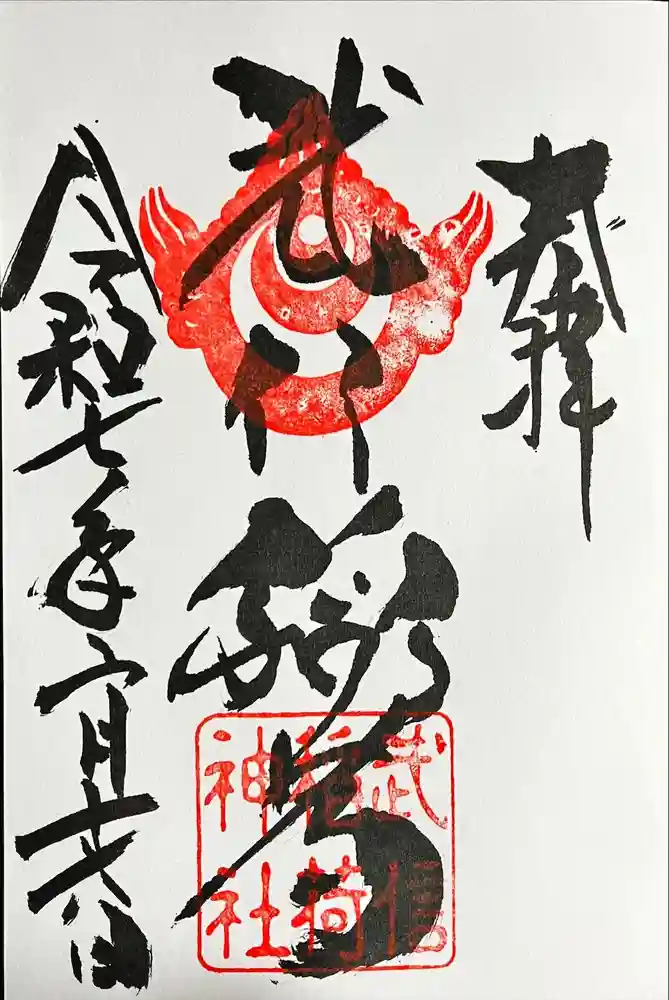 奉拝
武信稲荷
令和七年六月
武信
稲荷
神社